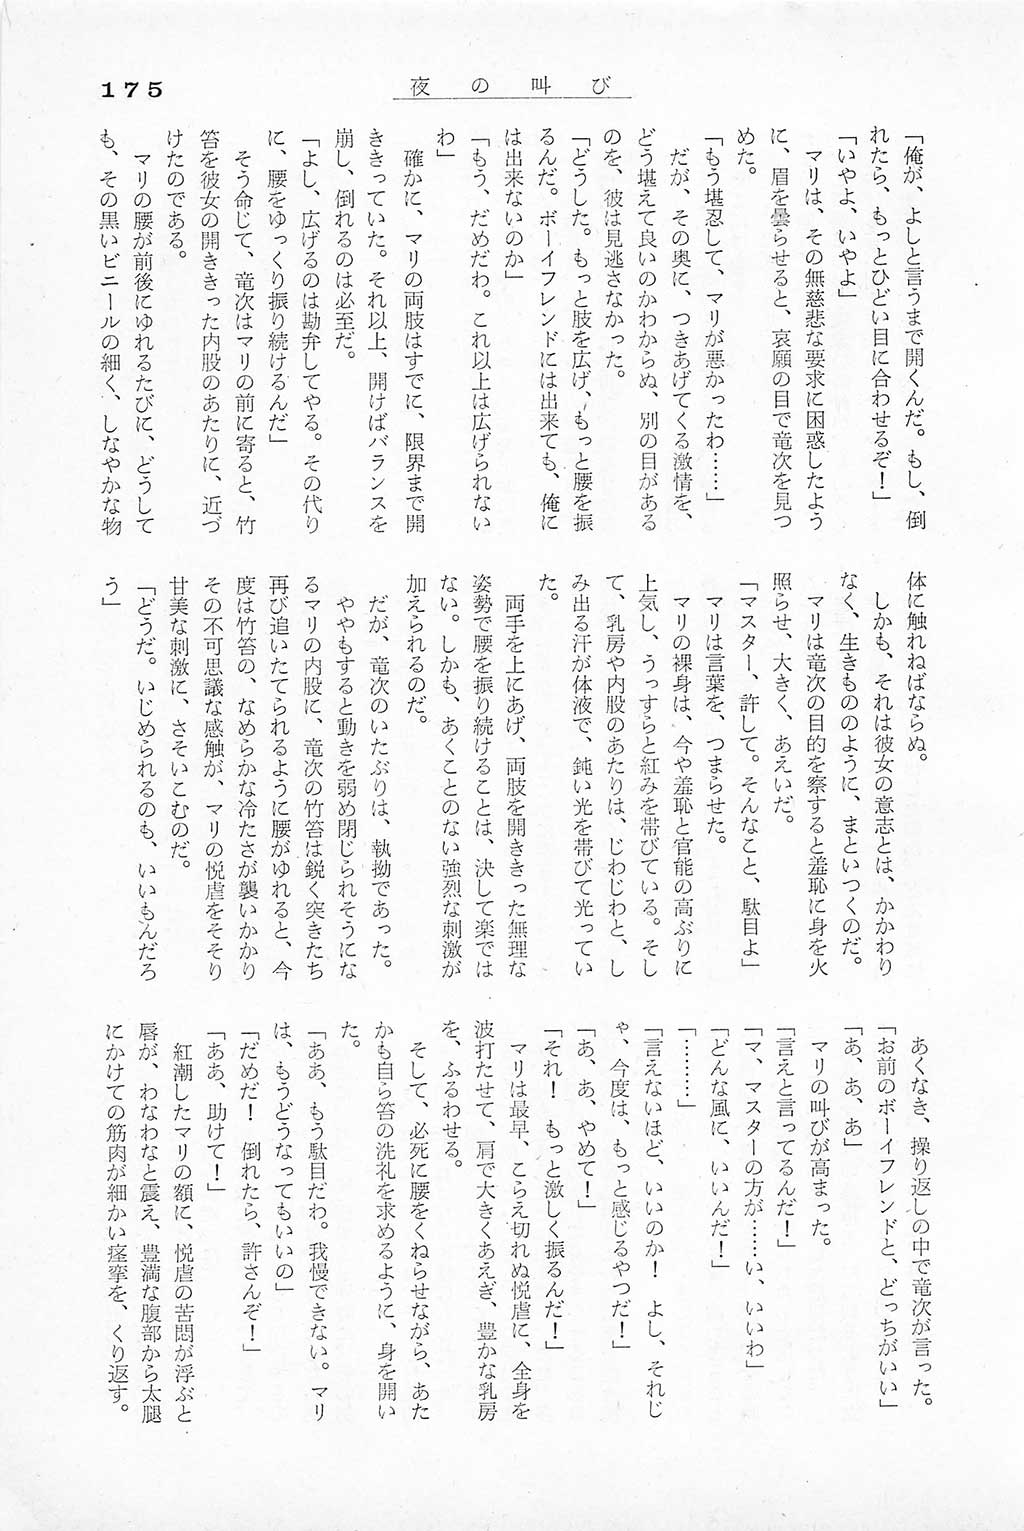 175
夜の叫び
「俺が、よしと言うまで開くんだ。もし、倒
れたら、もっとひどい目に合わせるぞ！」
「いやよ、いやよ」
マリは、その無慈悲な要求に困惑したよう
に、眉を曇らせると、哀願の目で竜次を見つ
めた。
「もう堪忍して、マリが悪かったわ……」
だが、その奥に、つきあげてくる激情を、
どう堪えて良いのかわからぬ、別の目がある
のを、彼は見逃さなかった。
「どうした。もっと肢を広げ、もっと腰を振
るんだ。ボーイフレンドには出来ても、俺に
は出来ないのか」
「もう、だめだわ。これ以上は広げられない
わ」
確かに、マリの両肢はすでに、限界まで開
ききっていた。それ以上、開けばバランスを
崩し、倒れるのは必至だ。
「よし、広げるのは勘弁してやる。その代り
に、腰をゆっくり振り続けるんだ」
そう命じて、竜次はマリの前に寄ると、竹
笞を彼女の開ききった内股のあたりに、近づ
けたのである。
マリの腰が前後にゆれるたびに、どうして
も、その黒いビニールの細く、しなやかな物
体に触れねばならぬ。
しかも、それは彼女の意志とは、かかわり
なく、生きもののように、まといつくのだ。
マリは竜次の目的を察すると羞恥に身を火
照らせ、大きく、あえいだ。
「マスター、許して。そんなこと、駄目よ」
マリは言葉を、つまらせた。
マリの裸身は、今や羞恥と官能の高ぶりに
上気し、うっすらと紅みを帯びている。そし
て、乳房や内股のあたりは、じわじわと、し
み出る汗が体液で、鈍い光を帯びて光ってい
た。
両手を上にあげ、両肢を開ききった無理な
姿勢で腰を振り続けることは、決して楽では
ない。しかも、あくことのない強烈な刺激が
加えられるのだ。
だが、竜次のいたぶりは、執拗であった。
ややもすると動きを弱め閉じられそうにな
るマリの内股に、竜次の竹笞は鋭く突きたち
再び追いたてられるように腰がゆれると、今
度は竹笞の、なめらかな冷たさが襲いかかり
その不可思議な感触が、マリの悦虐をそそり
甘美な刺激に、さそいこむのだ。
「どうだ。いじめられるのも、いいもんだろ
う」
あくなき、操り返しの中で竜次が言った。
「お前のボーイフレンドと、どっちがいい」
「あ、あ、あ」
マリの叫びが高まった。
「言えと言ってるんだ！」
「マ、マスターの方が……い、いいわ」
「どんな風に、いいんだ！」
「………」
「言えないほど、いいのか！　よし、それじ
ゃ、今度は、もっと感じるやつだ！」
「あ、あ、やめて！」
「それ！　もっと激しく振るんだ！」
マリは最早、こらえ切れぬ悦虐に、全身を
波打たせて、肩で大きくあえぎ、豊かな乳房
を、ふるわせる。
そして、必死に腰をくねらせながら、あた
かも自ら笞の洗礼を求めるように、身を開い
た。
「ああ、もう駄目だわ。我慢できない。マリ
は、もうどうなってもいいの」
「だめだ！　倒れたら、許さんぞ！」
「ああ、助けて！」
紅潮したマリの額に、悦虐の苦悶が浮ぶと
唇が、わなわなと震え、豊満な腹部から太腿
にかけての筋肉が細かい痙攣を、くり返す。